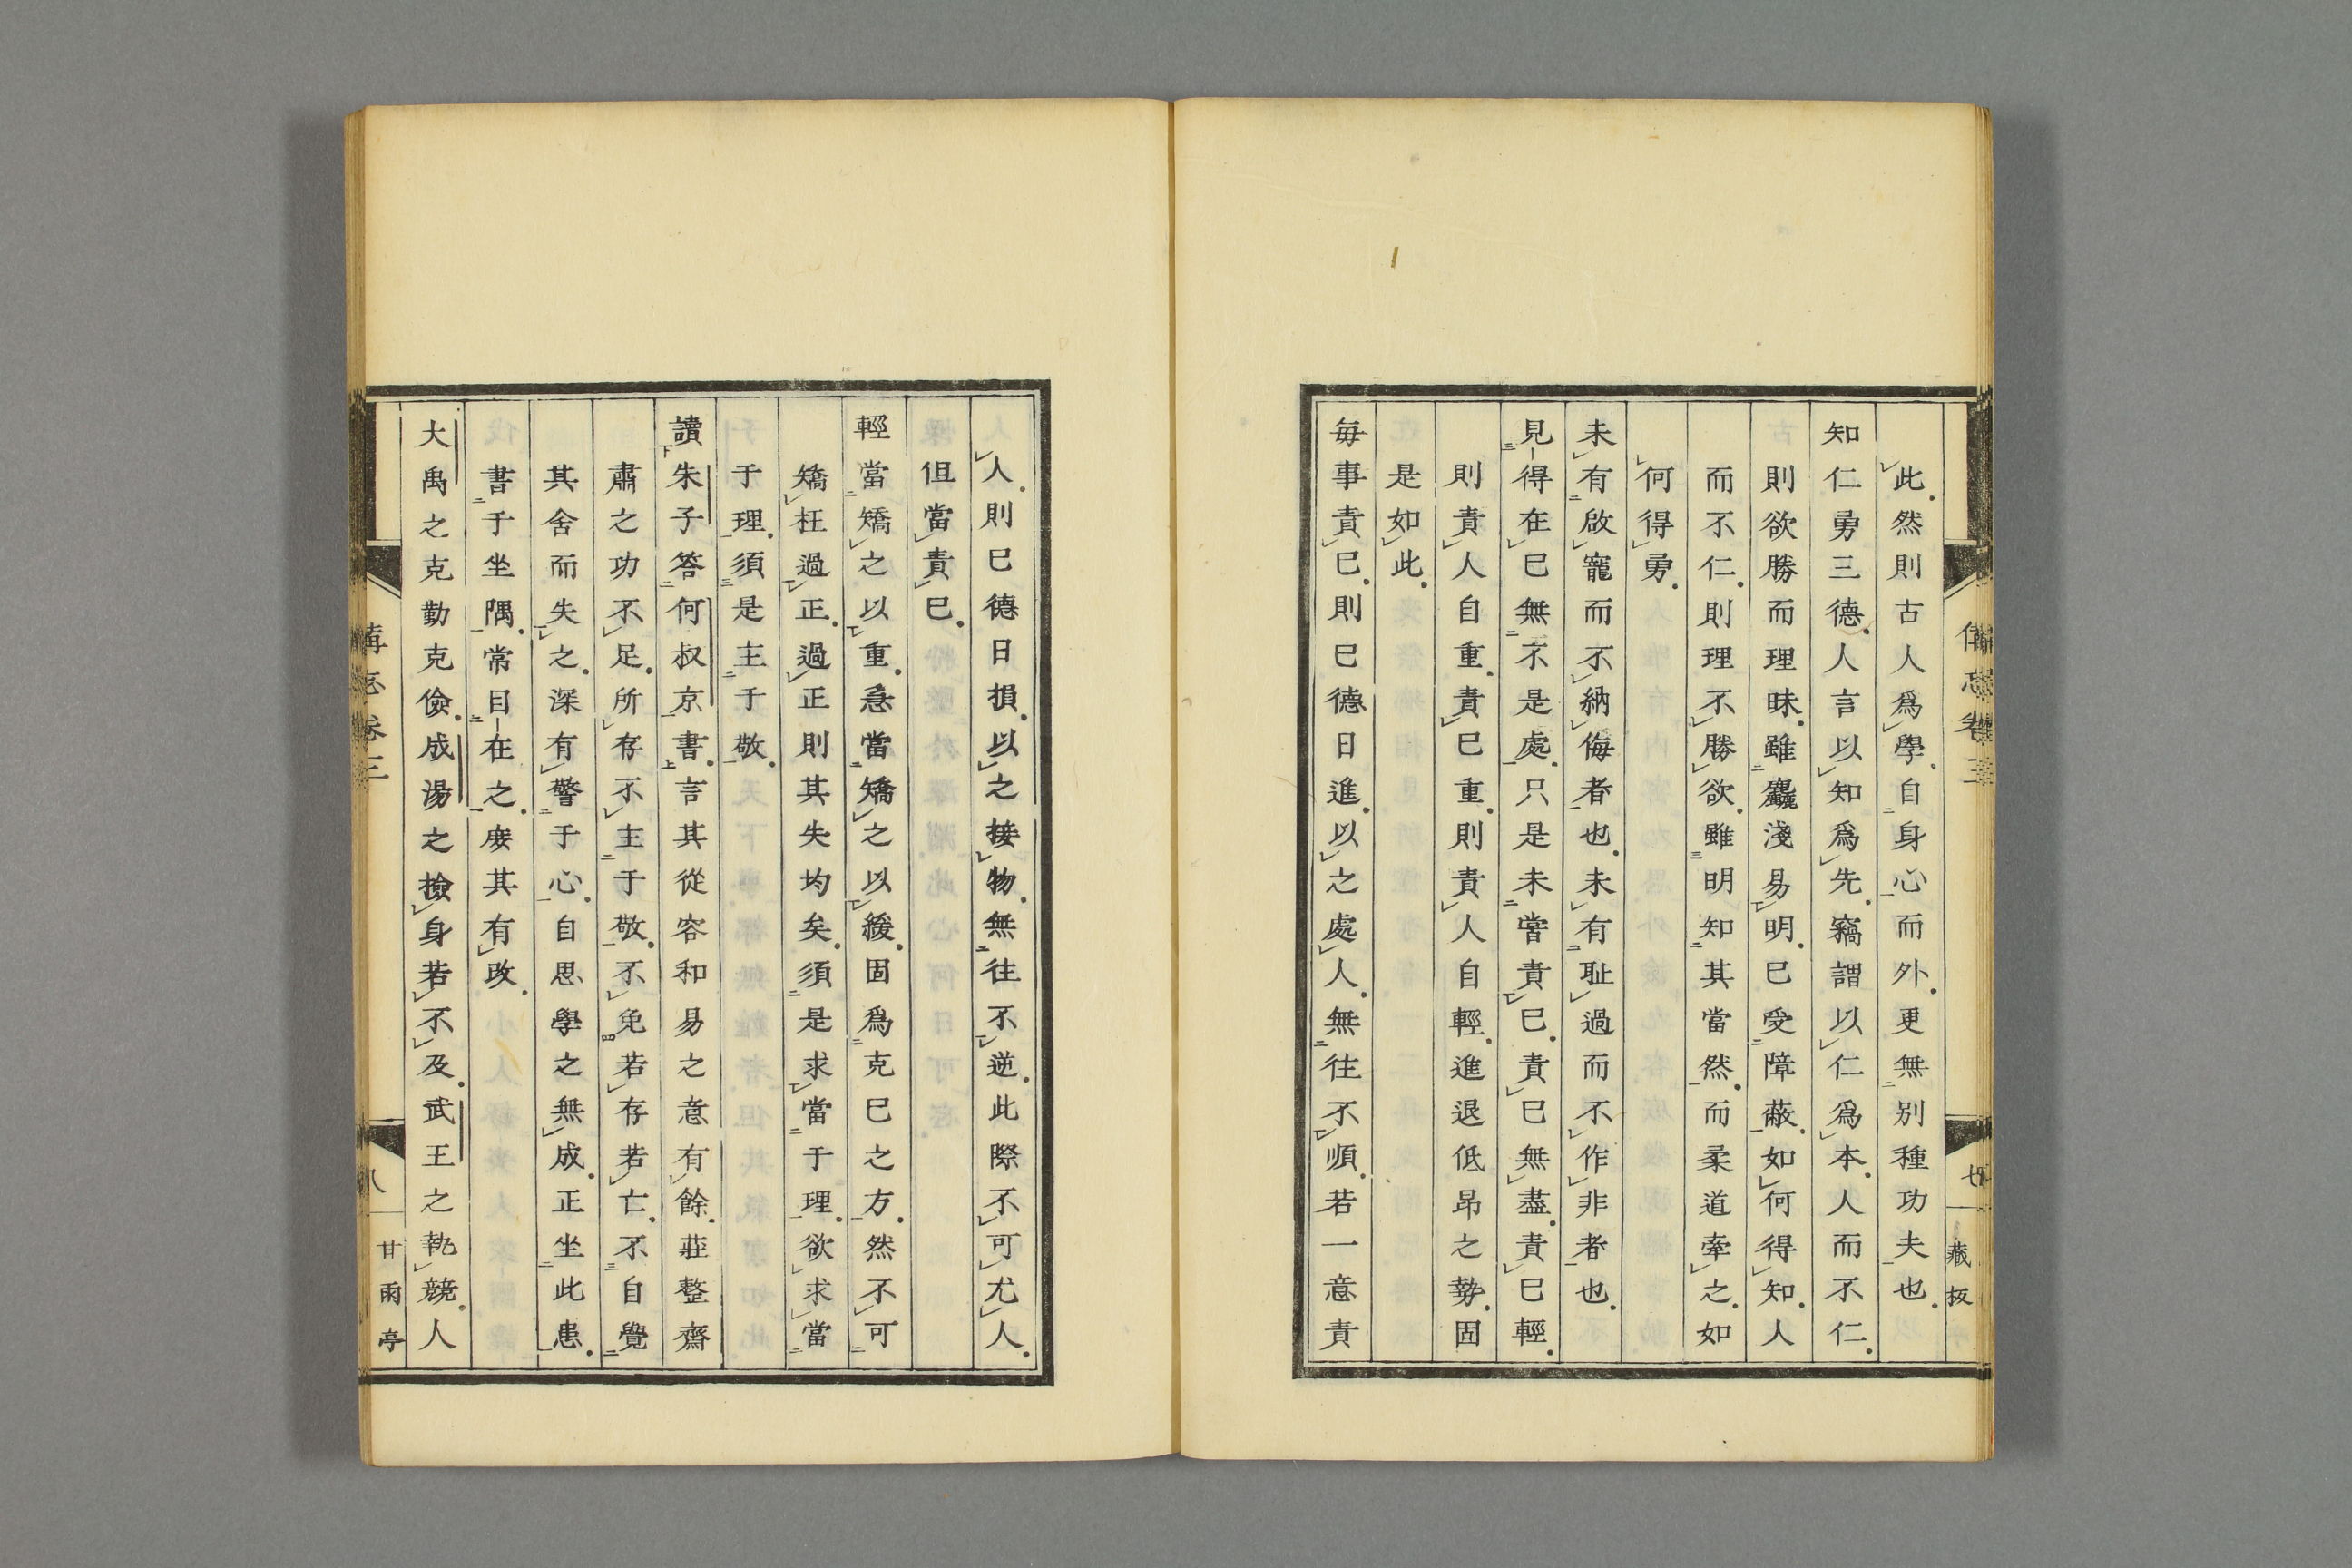 此然則古人爲學自身心而外更無別種功夫也
知仁勇三德人言以知爲先竊謂以仁爲本人而不仁
則欲勝而理昧雖麤淺易明已受障蔽如何得知人
而不仁則理不勝欲雖明知其當然而柔道牽之如
何得勇
未有啟寵而不納侮者也未有耻過而不作非者也
見得在已無不是處只是未嘗責已責已無盡責已輕
則責人自重責已重則責人自輕進退低昂之勢固
是如此
每事責已則已德日進以之處人無往不順若一意責
人則已德日損以之接物無往不逆此際不可尤人
但當責已
輕當矯之以重急當矯之以緩固爲克已之方然不可
矯枉過正過正則其失均矣須是求當于理欲求當
于理須是主于敬
讀朱子答何叔京書言其從容和易之意有餘莊整齋
肅之功不足所存不主于敬不免若存若亡不自覺
其舍而失之深有警于心自思學之無成正坐此患
書于坐隅常目在之庶其有改
大禹之克勤克儉成湯之撿身若不及武王之執競人
備忘卷三
七
藏板
備忘卷三
八
甘雨亭